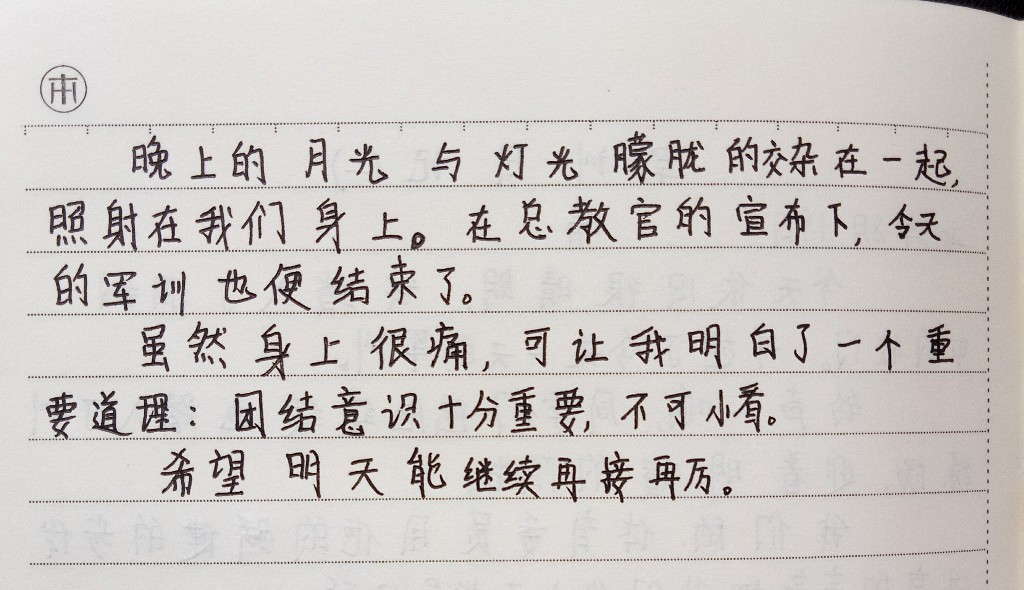 晚上的月光与灯光朦胧的交杂在一起,
照射在我们身上。在总教官的宣布下,今天
的军训也便结束了。
虽然身上很痛,可让我明白了一个重
要道理:团结意识十分重要,不可小看。
希望明天能继续再接再厉。